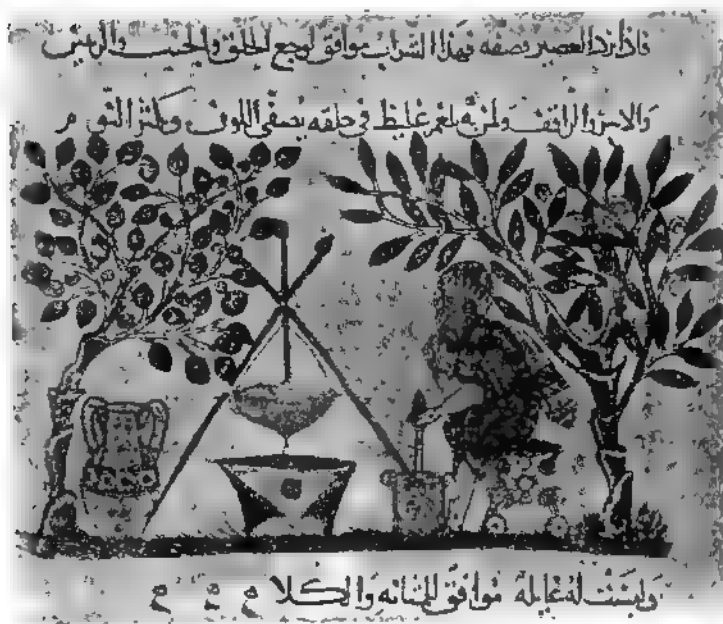 فاذا برد العصير فصفه فهذا الشراب موافق لوجع الحلق والجنب والريتين
ولمن به بلغم غليظ في حلقه يصفي اللون ويكثر النوم
وليست له غايله موافق للمثانه والكلا